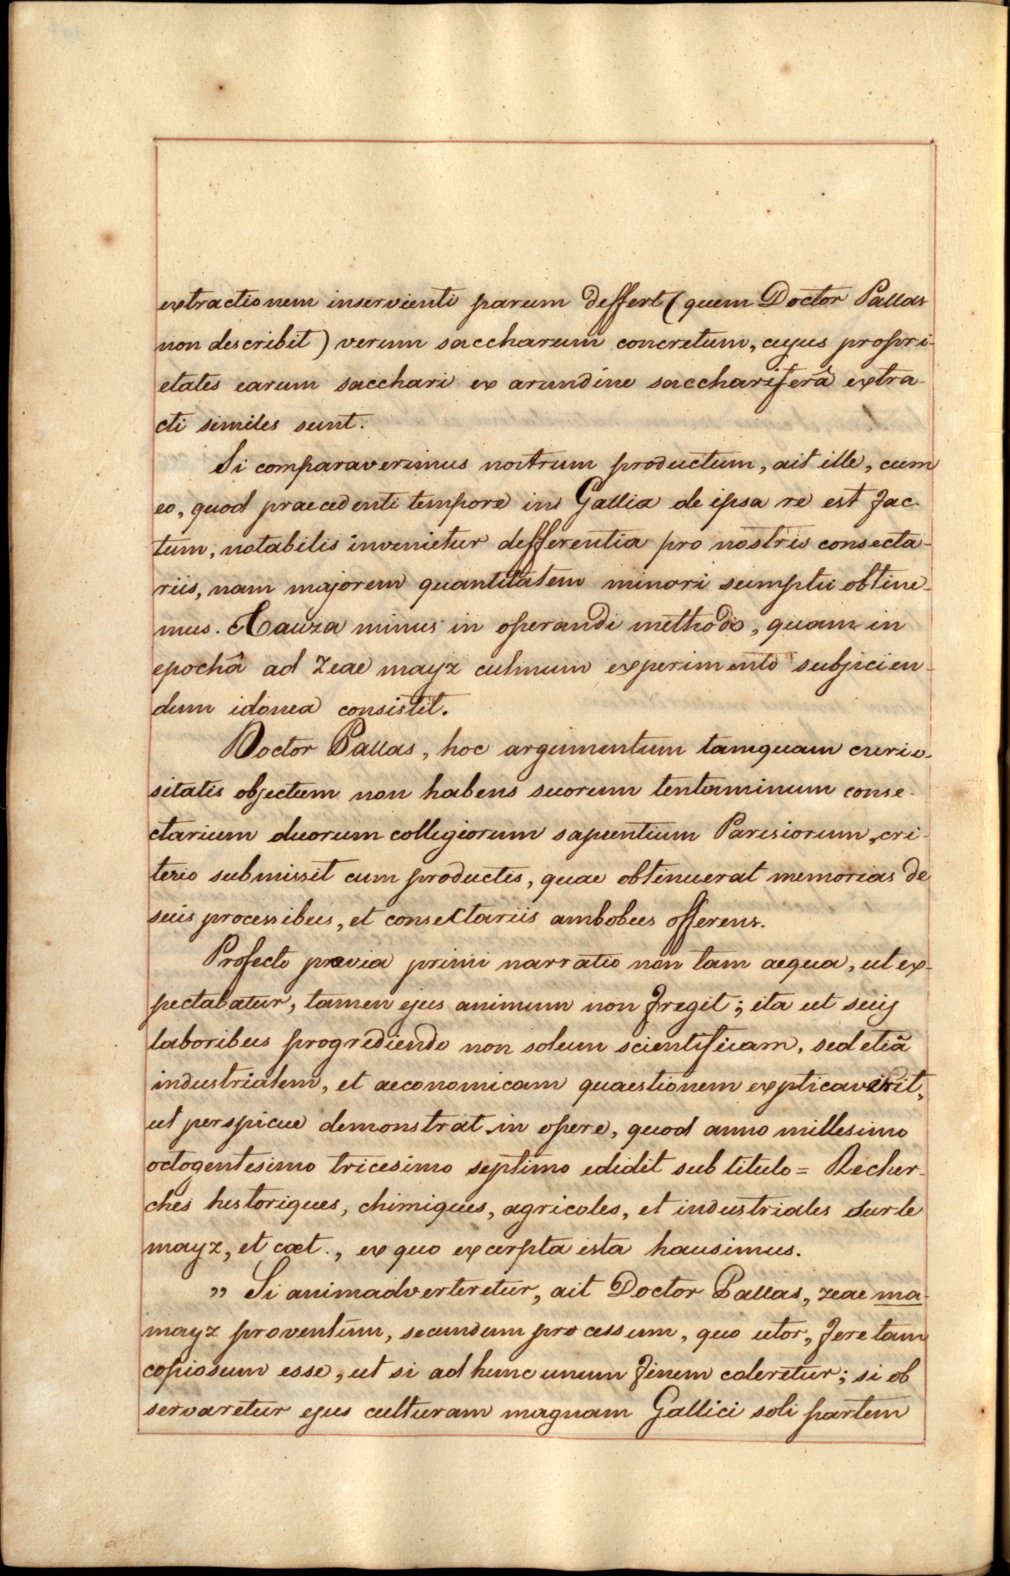 extractionem inservienti parum deffert (quem Doctor Pallas
non describit) verum saccharum concretum, cujus propri-
etates earum sacchari ex arundine saccharifera extra-
cti similes sunt.
Si comparaverimus nostrum productum, ait ille, cum
eo, quod praecedenti tempore in Gallia de ipsa re est fac-
tum, notabilis invenietur defferentia pro nostris consecta-
riis, nam majorem quantitatem minori sumptu obtine-
mus. Cauza minus in operandi methodo, quam in
epochâ ad zeae mayz culmum experimento subjicien-
dum idonea consistit.
Doctor Pallas, hoc argumentum tamquam curio-
sitatis objectum non habens suorum tentaminum conse-
ctarium duorum collegiorum sapientium Parisiorum, cri-
terio submissit cum productis, quae obtinuerat memorias de
suis processibus, et consectariis ambobus offerens.
Profecto prævia primi narratio non tam aequa, ut ex-
pectabatur, tamen ejus animum non fregit; ita ut suis
laboribus progrediendo non solum scientificam, sed etiã
industrialem, et aeconomicam quaestionem explicaverit,
ut perspicue demonstrat in opere, quod anno millesimo
octogentesimo tricesimo septimo edidit sub titulo = Recher-
ches historiques, chimiques, agricoles, et industriales sur le
mayz, et cæt., ex quo excerpta ista hausimus.
„ Si animadverteretur, ait Doctor Pallas, zeae ma-
mayz proventum, secundum processum, quo utor, fere tam
copiosum esse, ut si ad hunc unum finem coleretur; si ob
servaretur ejus culturam magnam Gallici soli partem